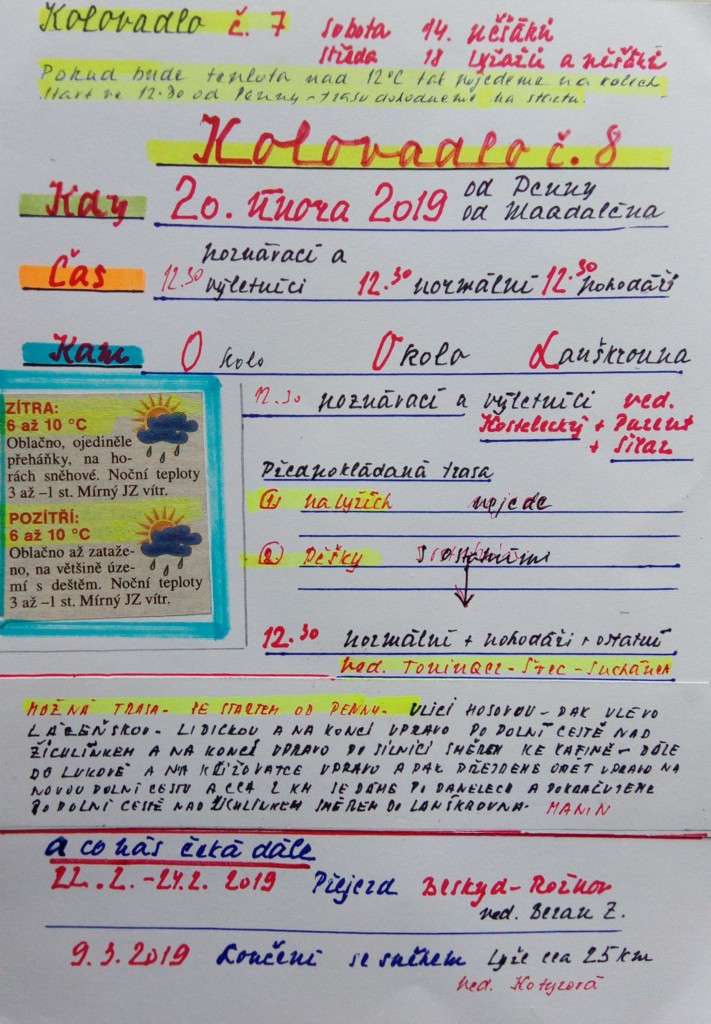 Kolovadlo č. 7 sobota 14. pěšáků
středa 18 lyžařů a pěšáků
Pokud bude teplota nad 12°C tak pojedeme na kolech
start ve 12.30 od Penny - trasu dohodneme na startu.
Kolovadlo č. 8
Kdy 20. února 2019 od Penny
od Maadaléna
Čas 12.30 poznávací a výletníci 12.30 normální 12.30 pohodáři
Kam O kolo Okolo Lanškrouna
12.30 poznávací a výletníci ved.
Kostelecký + Parent
+ Silar
ZÍTRA:
6 až 10 °C
Oblačno, ojediněle
přeháňky, na ho-
rách sněhové. Noční teploty
3 až –1 st. Mírný JZ vítr.
POZÍTŘÍ:
6 až 10 °C
Oblačno až zataže-
no, na většině úze-
mí s deštěm. Noční teploty
3 až –1 st. Mírný JZ vítr.
Předpokládaná trasa
1) na lyžích nejede
2) Pěšky s ostatními
12.30 normální + pohodáři + ostatní
ved. Toninger - Štec - Suchánek
MOŽNÁ TRASA - SE STARTEM OD PENNY - ULICÍ HOSOVOU - PAK VLEVO
LÁČEŇSKOU - LIDICKOU A NA KONCI VPRAVO PO POLNÍ CESTĚ NAD
ŽICHLÍNKEM A NA KONCI VPRAVO PO SILNICI SMĚREM KE KAFINĚ - DÁLE
DO LUKOVÉ A NA KŘIŽOVATCE VPRAVO A PAK PŘEJDEME OPĚT VPRAVO NA
NOVOU POLNÍ CESTU A CCA 2 KM SE DÁME DO DOLEVA A POKRAČUJEME
PO POLNÍ CESTĚ NAD ŽICHLINKEM SMĚREM DO LANŠKROUNA. MANIN
a co nás čeká dále
22. 2. - 24. 2. 2019 Přejezd Beskyd - Rožnov
ved. Beran Z.
9. 3. 2019 Loučení se sněhem Lyže cca 25 km
ved. Kotyzová